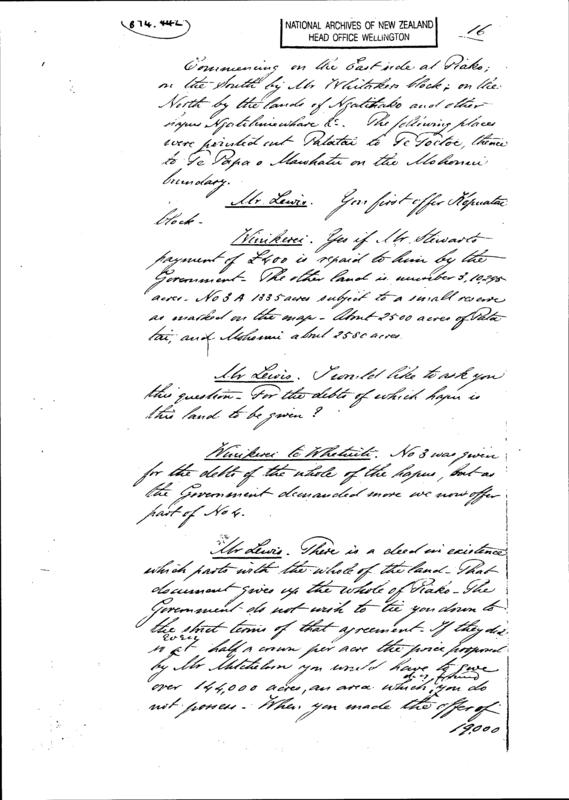 (674.442)
NATIONAL ARCHIVES OF NEW ZEALAND
HEAD OFFICE WELLINGTON
16
Commencing on the East side at Piako;
on the South by Mr Whitakers block; on the
North by the lands of Ngatihako and other
hapus &c. The following places
were pointed out Patatai to Te Toetoe, thence
to Te Papa o on the Mohonui
boundary.
Mr Lewis. You first offer Kopuatai
block -
Winikerei. Yes if Mr Stewarts
payment of £400 is repaid to him by the
Government - The other land is number 3, 10.295
acres - No 3A 1335 acres subject to a small reserve
as marked on the map - About 2500 acres of Pata
tai, and Mohonui about 2550 acres
Mr Lewis. I would like to ask you
this question - For the debts of which hapu is
this land to be given?
Winikerei to Whetuiti. No 3 was given
for the debts of the whole of the hapus, but as
the Government demanded more we now offer
part of No 4.
Mr Lewis. There is a deed in existence
which parts with the whole of the land - That
document gives up the whole of Piako - The
Government do not wish to tie you down to
the strict terms of that agreement - If they did
so, at half a crown per acre the price proposed
by Mr Mitchelson you would have to give
over 144,000 acres, an area which you do
not possess - When you made the offer of
19,000